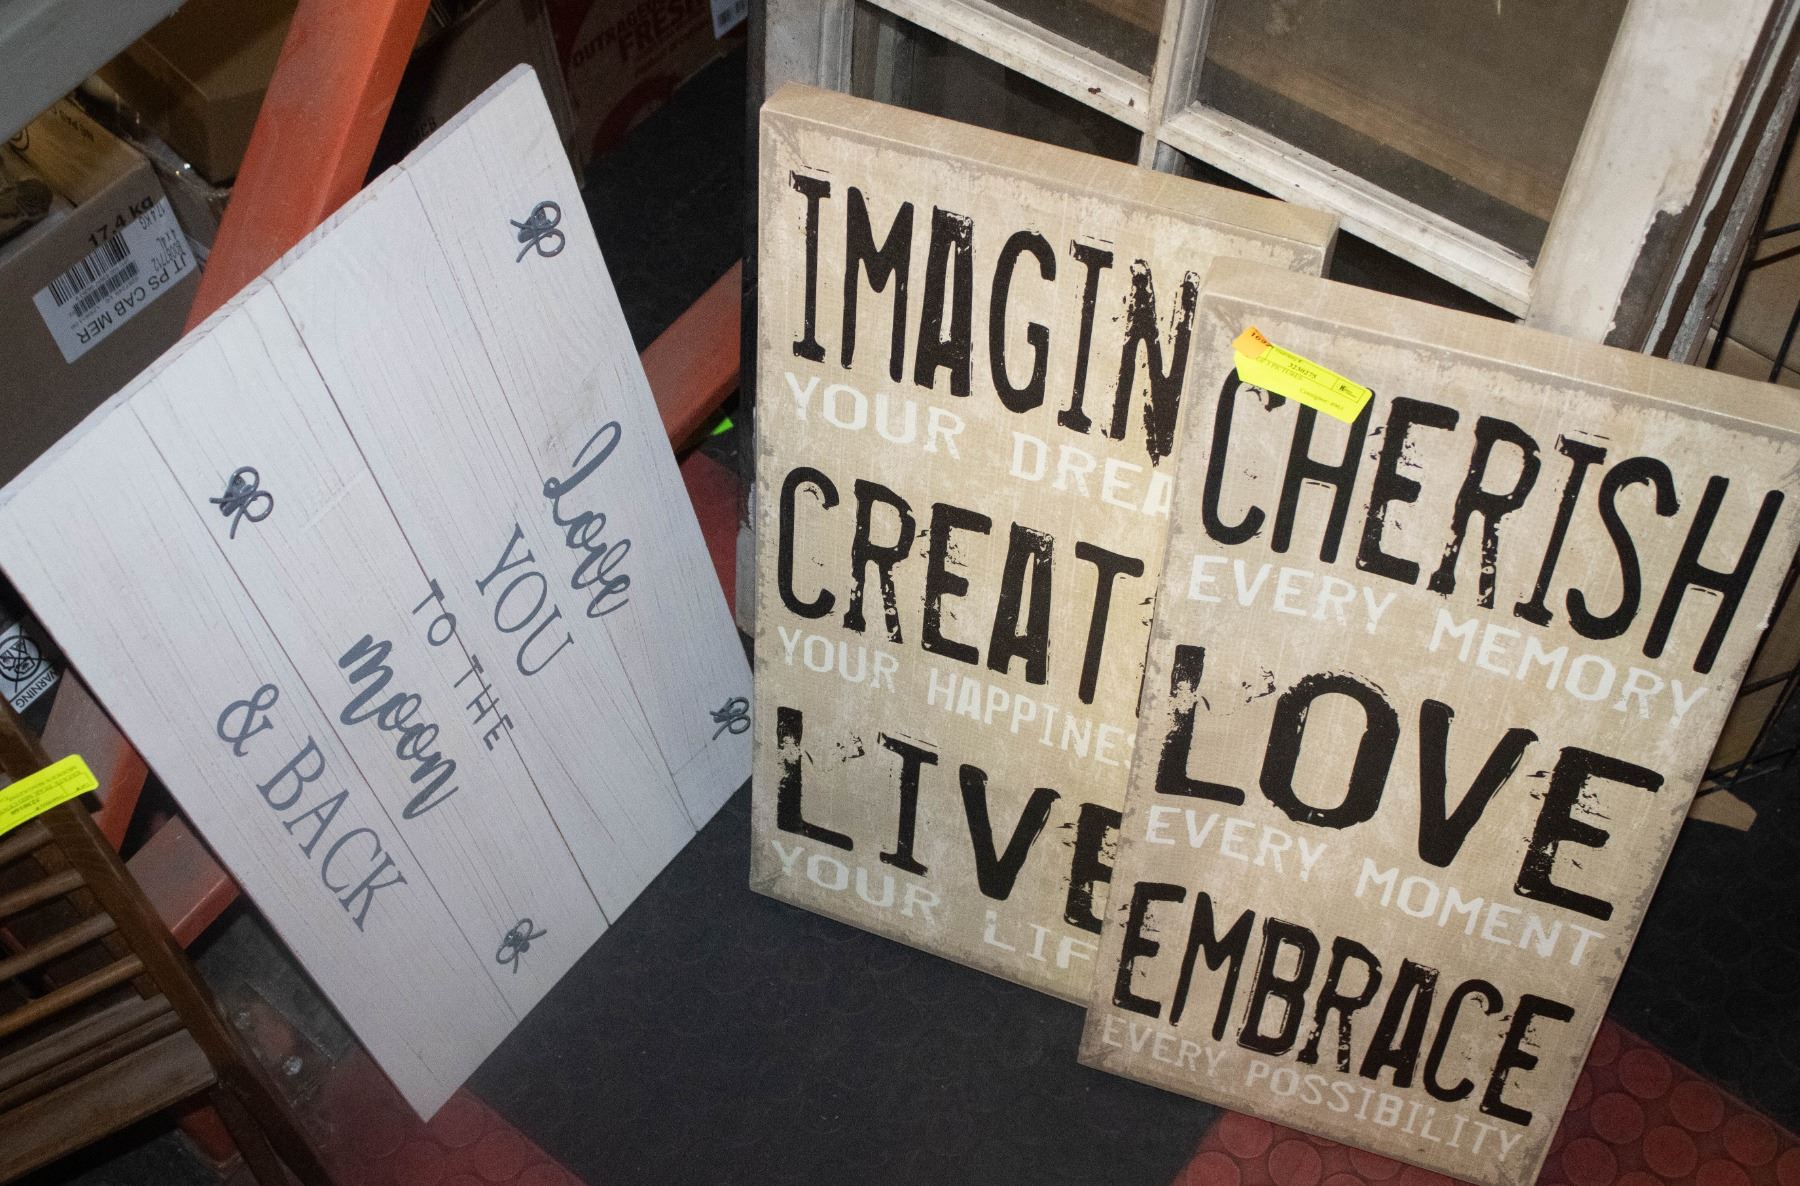 love
YOU
TO THE
moon
& BACK
IMAGIN
YOUR DREA
CREAT
YOUR HAPPINES
LIVE
YOUR LIF
CHERISH
EVERY MEMORY
LOVE
EVERY MOMENT
EMBRACE
EVERY POSSIBILITY
17.4 KG
JT PS CAB MER
WARNING
OUTRAGEOUS
FRESH